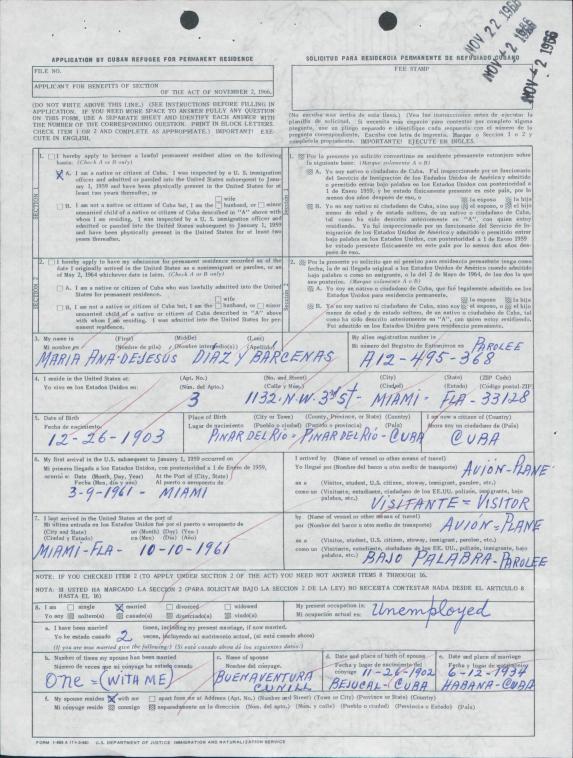 NOV 22 1966
NOV 22 1966
NOV 22 1966
APPLICATION BY CUBAN REFUGEE FOR PERMANENT RESIDENCE
SOLICITUD PARA RESIDENCIA PERMANENTE DE REFUGIADO CUBANO
FILE NO.
FEE STAMP
APPLICANT FOR BENEFITS OF SECTION
OF THE ACT OF NOVEMBER 2, 1966.
(DO NOT WRITE ABOVE THIS LINE.) (SEE INSTRUCTIONS BEFORE FILLING IN
APPLICATION. IF YOU NEED MORE SPACE TO ANSWER FULLY ANY QUESTION
ON THIS FORM, USE A SEPARATE SHEET AND IDENTIFY EACH ANSWER WITH
THE NUMBER OF THE CORRESPONDING QUESTION. PRINT IN BLOCK LETTERS.
CHECK ITEM 1 OR 2 AND COMPLETE AS APPROPRIATE.) IMPORTANT! EXE-
CUTE IN ENGLISH.
(No escriba más arriba de esta línea.) (Vea las instrucciones antes de ejecutar la
planilla de solicitud. Si necesita más espacio para contestar por completo alguna
pregunta, use un pliego separado e identifique cada respuesta con el número de la
pregunta correspondiente. Escriba con letra de imprenta. Marque o Sección 1 o 2
y complete correspondientemente. IMPORTANTE! EJECUTE EN INGLES.
SECTION 1
1. I hereby apply to become a lawful permanent resident alien on the following
basis: (Check A or B only)
X A. I am a native or citizen of Cuba. I was inspected by a U. S. immigration
officer and admitted or paroled into the United States subsequent to Janu-
ary 1, 1959 and have been physically present in the United States for at
least two years thereafter, or
B. I am not a native or citizen of Cuba but I am the wife husband, or minor
unmarried child of a native or citizen described in "A" above with
whom I am residing. I was inspected by a U. S. immigration officer and
admitted or paroled into the United States subsequent to January 1, 1959
and have been physically present in the United States for at least two
years thereafter.
Sección 1
1. Por la presente yo solicito convertirme en residente permanente extranjero sobre
la siguiente base: (Marque solamente A o B)
A. Yo soy nativo o ciudadano de Cuba. Fui inspeccionado por un funcionario
del Servicio de Inmigración de los Estados Unidos y admitido o
permitido entrar bajo palabra en los Estados Unidos con posterioridad al
1 de Enero 1959, y he estado físicamente presente en este país, por lo
menos dos años después de eso, o
B. Yo no soy nativo o ciudadano de Cuba, pero soy la esposa el esposo la hija
hijo menor de edad y de estado soltero, de un nativo o ciudadano de Cuba,
tal como ha sido descrito anteriormente en "A", con quien estoy
residiendo. Yo fui inspeccionado por un funcionario del Servicio de Inmi-
gración de los Estados Unidos y admitido o permitido entrar bajo palabra
en los Estados Unidos, con posterioridad al 1 de Enero 1959
y he estado físicamente presente en este país por lo menos dos años des-
pués de eso.
SECTION 2
2. I hereby apply to have my admission for permanent residence recorded as of the
date I originally arrived in the United States as a nonimmigrant or parolee, or as
of May 2, 1964 whichever date is later. (Check A or B only)
A. I am a native or citizen of Cuba who was lawfully admitted into the United
States for permanent residence.
B. I am not a native or citizen of Cuba, but I am the wife husband, or minor
unmarried child of a native or citizen of Cuba described in "A" above
with whom I am residing. I was admitted into the United States for per-
manent residence.
Sección 2
3. My name is (First) (Middle) (Last)
Mi nombre es (Nombre de pila) (Nombre intermedio(s)) (Apellido)
MARIA ANA DEJESÚS DIAZ Y BARCENAS
My alien registration number is
Mi número del Registro de Extranjeros es PAROLEE
A12-495-368
4. I reside in the United States at: (Apt. No.) (No. and Street) (City) (State) (ZIP Code)
Yo vivo en los Estados Unidos en: (Núm. del Apto.) (Calle y Núm.) (Ciudad) (Estado) (Código postal-ZIP)
3 1132-N.W. 3rd St- MIAMI- FLA-33128
5. Date of Birth Place of Birth (City or Town) (County, Province, or State) (Country) I am now a citizen of (Country)
Fecha de nacimiento Lugar de nacimiento (Pueblo o ciudad) (Provincia) (País) Ahora soy ciudadano de (País)
12-26-1903 PINAR DEL RÍO- PINAR DEL RÍO- CUBA CUBA
6. My first arrival in the U.S. subsequent to January 1, 1959 occurred on
Mi primera llegada a los Estados Unidos, con posterioridad a 1 de Enero de 1959,
ocurrió el Date (Month, Day, Year) At the Port of (City, State)
Fecha (Mes, día y año) Al puerto o aeropuerto de
3-9-1961- MIAMI
I arrived by (Name of vessel or other means of travel)
Yo llegué por (Nombre del barco a otro medio de transporte) AVIÓN-PLANE
as a (Visitor, student, U.S. citizen, stoway, immigrant, parolee, etc.)
como un (Visitante, estudiante, ciudadano de los EE.UU, polizón, inmigrante, bajo
palabra, etc.) VISITANTE=VISITOR
7. I last arrived in the United States at the port of
Mi última entrada en los Estados Unidos fue por el puerto o aeropuerto de
(City and State) on (Month) (Day) (Year)
(Ciudad y Estado) en (Mes) (Día) (Año)
MIAMI-FLA- 10-10-1961
by (Name of vessel or other means of travel)
por (Nombre del barco o otro medio de transporte) AVION=PLANE
as a (Visitor, student, citizen, stoway, immigrant, parolee, etc.)
como un (Visitante, estudiante, ciudadano de EE. UU., polizón, inmigrante, bajo
palabra, etc.) BAJO PALABRA-PAROLEE
NOTE: IF YOU CHECKED ITEM 2 (TO APPLY UNDER SECTION 2 OF THE ACT) YOU NEED NOT ANSWER ITEMS 8 THROUGH 16.
NOTA: SI USTED HA MARCADO LA SECCION 2 (PARA SOLICITAR BAJO LA SECCION 2 DE LA LEY) NO NECESITA CONTESTAR NADA DESDE EL ARTICULO 8
HASTA EL 16)
8. I am single X married divorced widowed
Yo soy soltero(a) casado(a) divorciado(a) viudo(a)
My present occupation is:
Mi ocupación actual es: Unemployed
a. I have been married times, including my present marriage, if now married.
Yo he estado casado 2 veces, incluyendo mi matrimonio actual, (si está casado ahora)
(If you are married give the following:) (Si está casado ahora dé los siguientes datos:)
b. Number of times my spouse has been married
Número de veces que mi cónyuge ha estado casado
One=(WITH ME)
c. Name of spouse
Nombre del cónyuge.
BUENAVENTURA
CUNILL
d. Date and place of birth of spouse.
Fecha y lugar de nacimiento del cónyuge
11-26-1902
BEJUCAL-CUBA
e. Date and place of marriage
6-12-1934
HABANA-CUBA
f. My spouse resides X with me apart from me at Address (Apt. No.) (Number and Street) (Town or City) (Province or State) (Country)
Mi cónyuge reside conmigo separadamente en la dirección (Núm. del apto.) (Núm. y calle) (Pueblo o ciudad) (Provincia o Estado) (País)
U.S. DEPARTMENT OF JUSTICE IMMIGRATION AND NATURALIZATION SERVICE